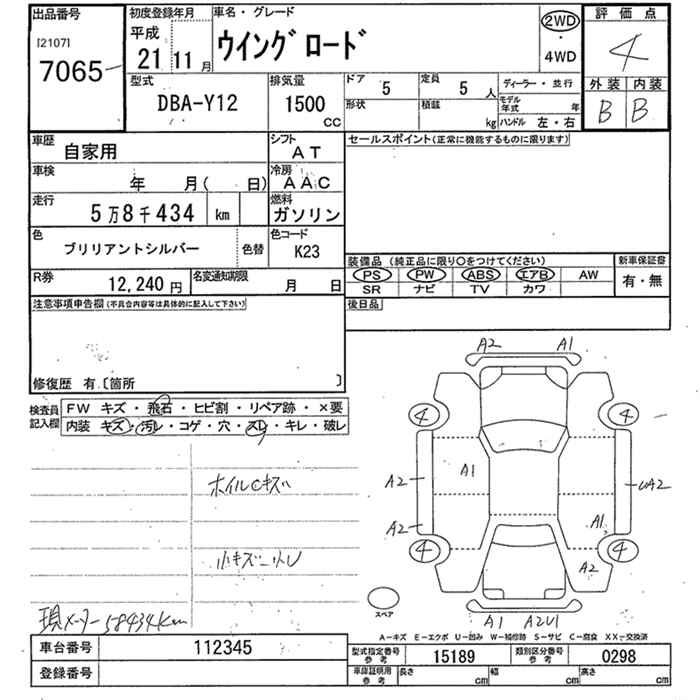 出品番号
[2107]
7065
初度登録年月
平成
21 11 月
車名・グレード
ウイングロード
2WD
・
4WD
評価点
4
外装 内装
B B
型式
DBA-Y12
排気量
1500
CC
ドア 5
定員 5 人
形状
積載 kg
ディーラー・並行
モデル年式 年
ハンドル 左・右
車歴 自家用
シフト AT
車検 年 月( 日)
冷房 AAC
走行 5万8千434 km
燃料 ガソリン
色 ブリリアントシルバー 色替
色コード K23
R券 12,240 円
名変通知期限 月 日
セールスポイント(正常に機能するものに限ります)
装備品(純正品に限り○をつけてください)
PS PW ABS エアB AW
SR ナビ TV カワ
新車保証書
有・無
後日品
注意事項申告欄(不具合内容等は具体的に記入して下さい)
修復歴 有〔箇所 〕
検査員記入欄
FW キズ・飛石・ヒビ割・リペア跡・×要
内装 キズ・汚レ・コゲ・穴・スレ・キレ・破レ
ホイルCキズ
小キズ
現メーター58434km
A2 A1
4 4
A2 A1 UA2
A2 A1
4 4
A2
スペア
A1 A2U1
A-キズ E-エクボ U-凹み W-補修跡 S-サビ C-腐食 XX-交換済
車台番号 112345
登録番号
型式指定番号 参考 15189
類別区分番号 参考 0298
車庫証明用 参考 長さ cm 幅 cm 高さ cm